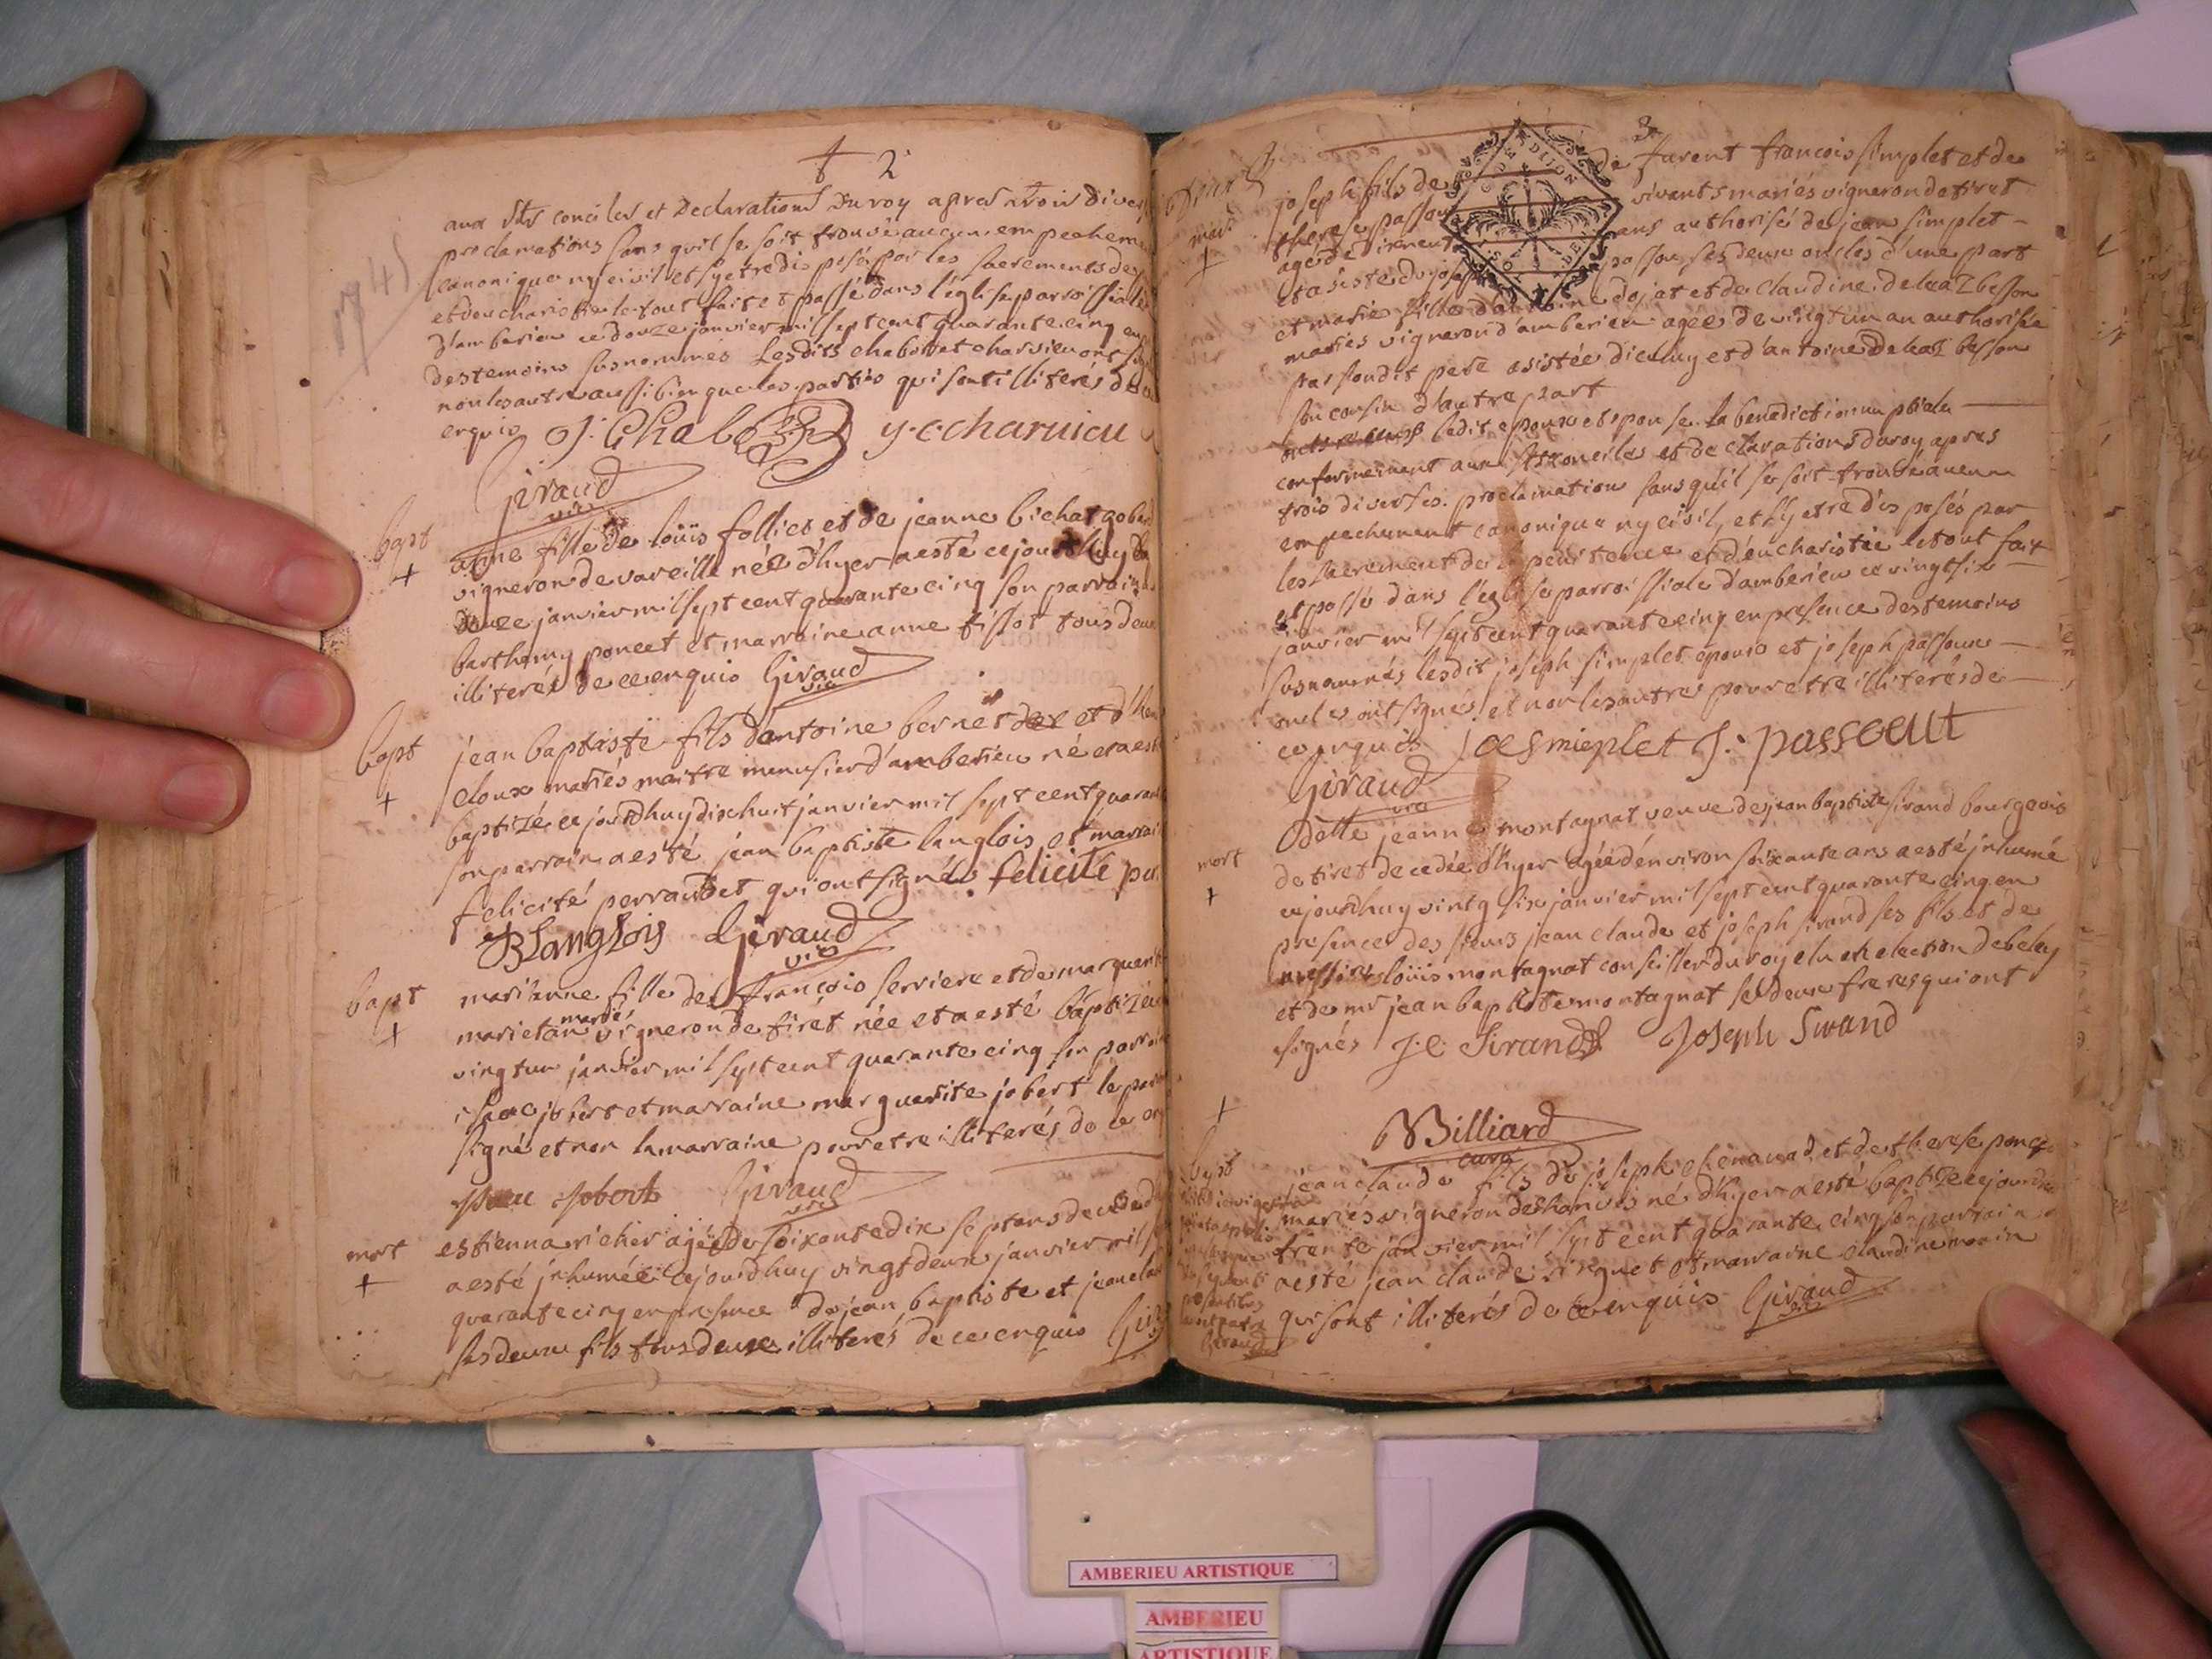 2
aux sts conciles et Declarations du roy apres trois diver
proclamations sans quil se soit trouvé aucun empecheme
canonique ny civil et sy etre disposé par les sacrements de
et d'eucharistie le tout fait et passé dans l'église parroissiale
d'amberieu ce douze janvier mil sept cent quarante cinq en
des temoins susnommés Lesdits chabot et charvieu ont
non les autres aussi bien que les parties qui sont illiterés de
enquis J. Chab y. c charuieu
Giraud
vic
bapt
+
anne fille de loüis folliet et de jeanne bichat
vigneron de vareille née d'hyer a esté ce jourd'huy
douze janvier mil sept cent quarante cinq son parrain
barthemy poncet et marraine anne tissot tous deux
illiterés de ce enquis Giraud
vic
bapt
+
jean baptiste fils d'antoine bernet et d'
cloux mariés maitre menusier d'amberieu né et a esté
baptizé ce jourd'huy dix huit janvier mil sept cent quaran
son parrain a esté jean baptiste langlois et marrai
felicité perraudet qui ont signés felicité per
JB langlois Giraud
vic
bapt
+
marianne fille de françois serriere et de marguerit
marietan mariés vigneron de tiret née et a esté baptizée
vingt un janvier mil sept cent quarante cinq son parrain
isaac jobert et marraine marguerite jobert le parr
signé et non la marraine pour etre illiterés de ce
jobert Giraud
vic
mort
+
estienna richer agée de soixante dix sept ans decedée
a esté jnhumée ce jourd'huy vingt deux janvier mil
quarante cinq en presence de jean baptiste et jean cla
ses deux fils tous deux illiterés de ce enquis
3
mar.
+
joseph fils de de furent francois simplet et de
vivants mariés vigneron de tiret
ans authorisé de jean simplet
ses deux oncles d'une part
et marie fille dojat et de claudine delaz besson
mariés vigneron d'amberieu agée de vingt un an authorisée
par sondit pere asistée d'iceluy et d'antoine delaz besson
son cousin d'autre part
ledit epoux et epouse la benediction nuptiale
conformement aux sts conciles et declarations du roy apres
trois diverses proclamation sans qu'il se soit trouvé aucun
empechement canonique ny civil, et s'y etre disposés par
les sacrement de penitence et d'eucharistie le tout fait
et passé dans l'eglise parroissiale d'amberieu ce vingt six
janvier mil sept cent quarante cinq en presence des temoins
susnommés lesdit joseph simplet epoux et joseph passoux
oncles ont signés et non les autres pour etre illiterés de
ce enquis J: passeut
Giraud
vic
mort
+
Odette jeanne montagnat veuve de jean baptiste sirand bourgeois
de tiret decedée d'hyer agée d'environ soixante ans a esté jnhumée
ce jourd'huy vintg six janvier mil sept cent quarante cinq en
presence des sieurs jean claude et joseph sirand ses fils et de
loüis montagnat conseiller du roy elu en election de beley
et de mr jean baptiste montagnat ses deux freres qui ont
signés J. C. Sirand Joseph Sirand
Billiard
curé
+
bapt
jean claude fils de joseph chenavad et de therese ponce
mariés vigneron des hanvés né d'hyer a esté baptizé ce jourd
trente janvier mil sept cent quarante cinq son parrain
a esté jean claude et marraine claudine morin
qui sont illiterés de ce enquis Giraud
vic
Giraud
AMBERIEU ARTISTIQUE
AMBERIEU
ARTISTIQUE